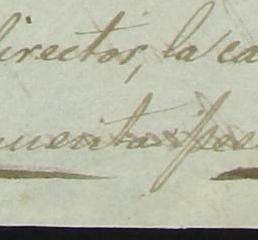 director, la ca
cuenta pes